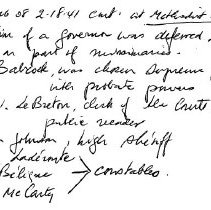 of 2-18-41 cont. at Methodist
of a governor was deferred,
on part of missionaries.
Babcock, was chosen supreme
with probate powers
LeBreton, clerk of the Court
public recorder
Johnson, high sheriff
Ladéroute
Bélique > constables.
McCarty